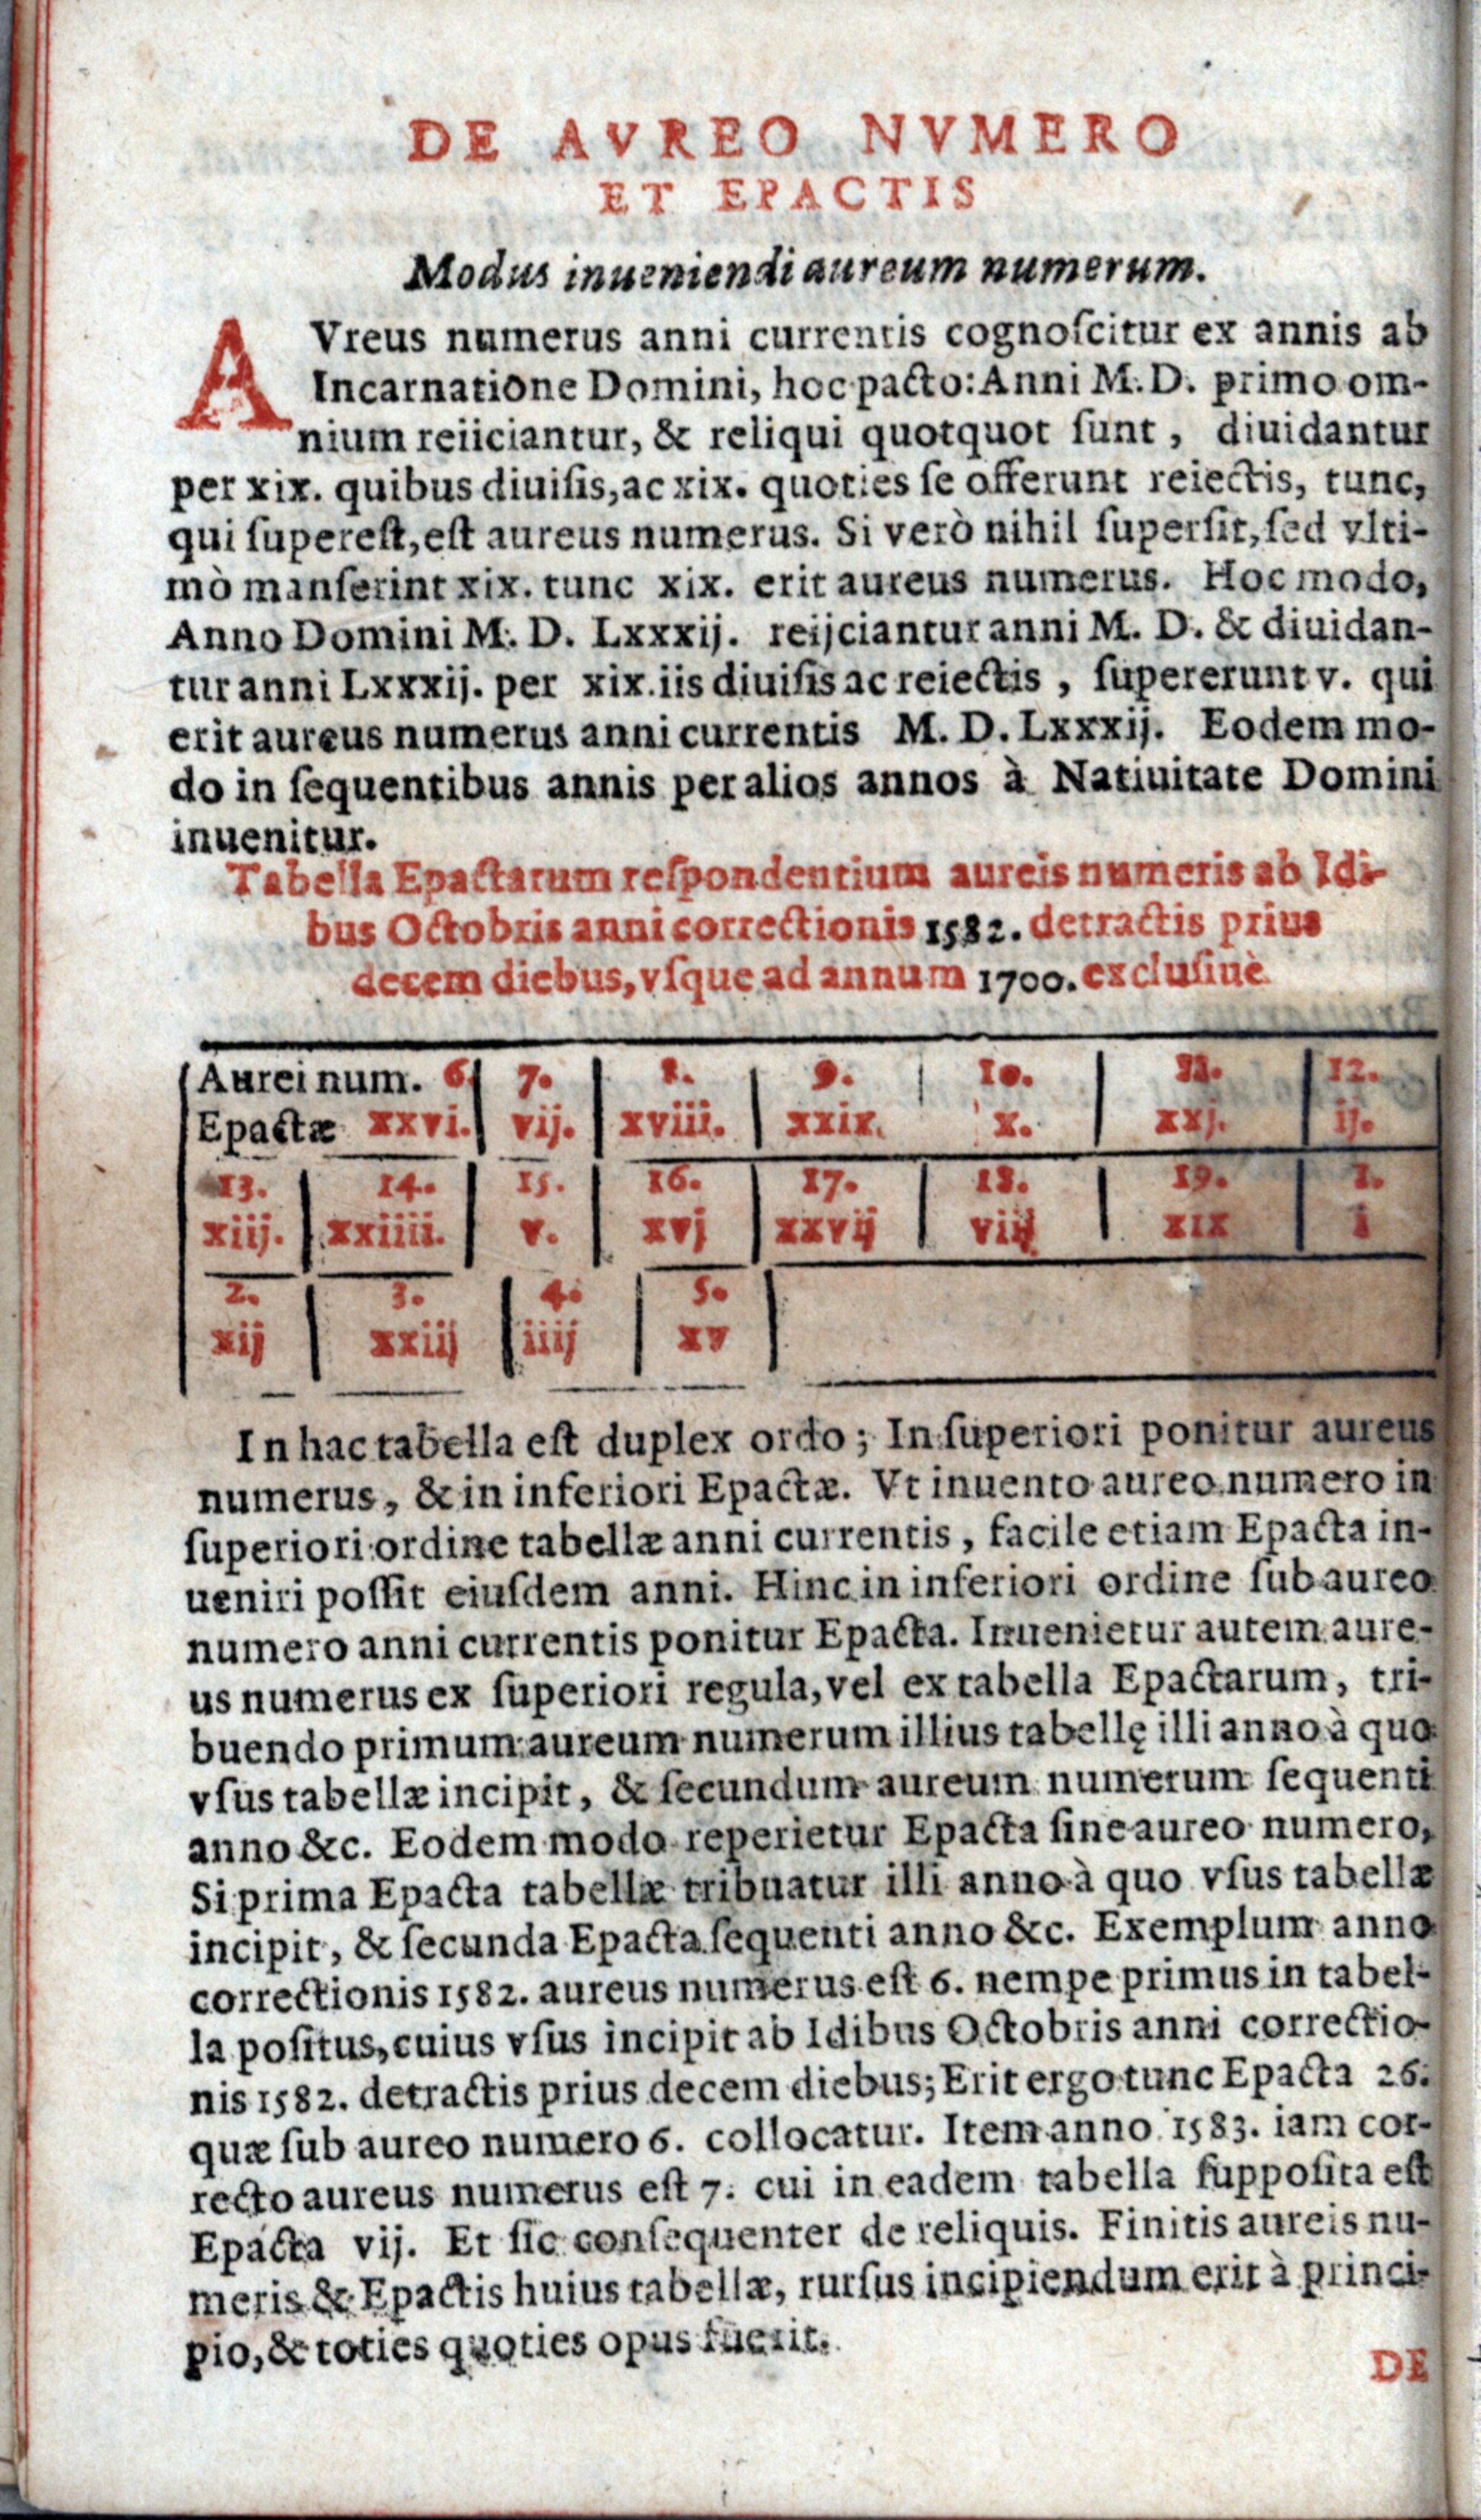 DE AVREO NVMERO
ET EPACTIS
Modus inueniendi aureum numerum.
AVreus numerus anni currentis cognoſcitur ex annis ab
Incarnatione Domini, hoc pacto: Anni M. D. primo om-
nium reiiciantur, & reliqui quotquot ſunt, diuidantur
per xix. quibus diuiſis, ac xix. quoties ſe offerunt reiectis, tunc,
qui ſupereſt, eſt aureus numerus. Si verò nihil ſuperſit, ſed vlti-
mò manſerint xix. tunc xix. erit aureus numerus. Hoc modo,
Anno Domini M. D. Lxxxij. reijciantur anni M. D. & diuidan-
tur anni Lxxxij. per xix. iis diuiſis ac reiectis, ſupererunt v. qui
erit aureus numerus anni currentis M. D. Lxxxij. Eodem mo-
do in ſequentibus annis per alios annos à Natiuitate Domini
inuenitur.
Tabella Epactarum reſpondentium aureis numeris ab Idi-
bus Octobris anni correctionis 1582. detractis prius
decem diebus, vſque ad annum 1700. excluſiuè
Aurei num. 6. 7. 8. 9. 10. 11. 12.
Epactæ xxvi. vij. xviii. xxix. x. xxj. ij.
13. 14. 15. 16. 17. 18. 19. 1.
xiij. xxiiii. v. xvj xxvij viij xix i
2. 3. 4. 5.
xij xxiij iiij xv
In hac tabella eſt duplex ordo; In ſuperiori ponitur aureus
numerus, & in inferiori Epactæ. Vt inuento aureo numero in
ſuperiori ordine tabellæ anni currentis, facile etiam Epacta in-
ueniri poſſit eiuſdem anni. Hinc in inferiori ordine ſub aureo
numero anni currentis ponitur Epacta. Inuenietur autem aure-
us numerus ex ſuperiori regula, vel ex tabella Epactarum, tri-
buendo primum aureum numerum illius tabellę illi anno à quo
vſus tabellæ incipit, & ſecundum aureum numerum ſequenti
anno &c. Eodem modo reperietur Epacta ſine aureo numero,
Si prima Epacta tabellæ tribuatur illi anno à quo vſus tabellæ
incipit, & ſecunda Epacta ſequenti anno &c. Exemplum anno
correctionis 1582. aureus numerus eſt 6. nempe primus in tabel-
la poſitus, cuius vſus incipit ab Idibus Octobris anni correctio-
nis 1582. detractis prius decem diebus; Erit ergo tunc Epacta 26.
quæ ſub aureo numero 6. collocatur. Item anno 1583. iam cor-
recto aureus numerus eſt 7. cui in eadem tabella ſuppoſita eſt
Epacta vij. Et ſic conſequenter de reliquis. Finitis aureis nu-
meris & Epactis huius tabellæ, rurſus incipiendum erit à princi-
pio, & toties quoties opus fuerit.
DE